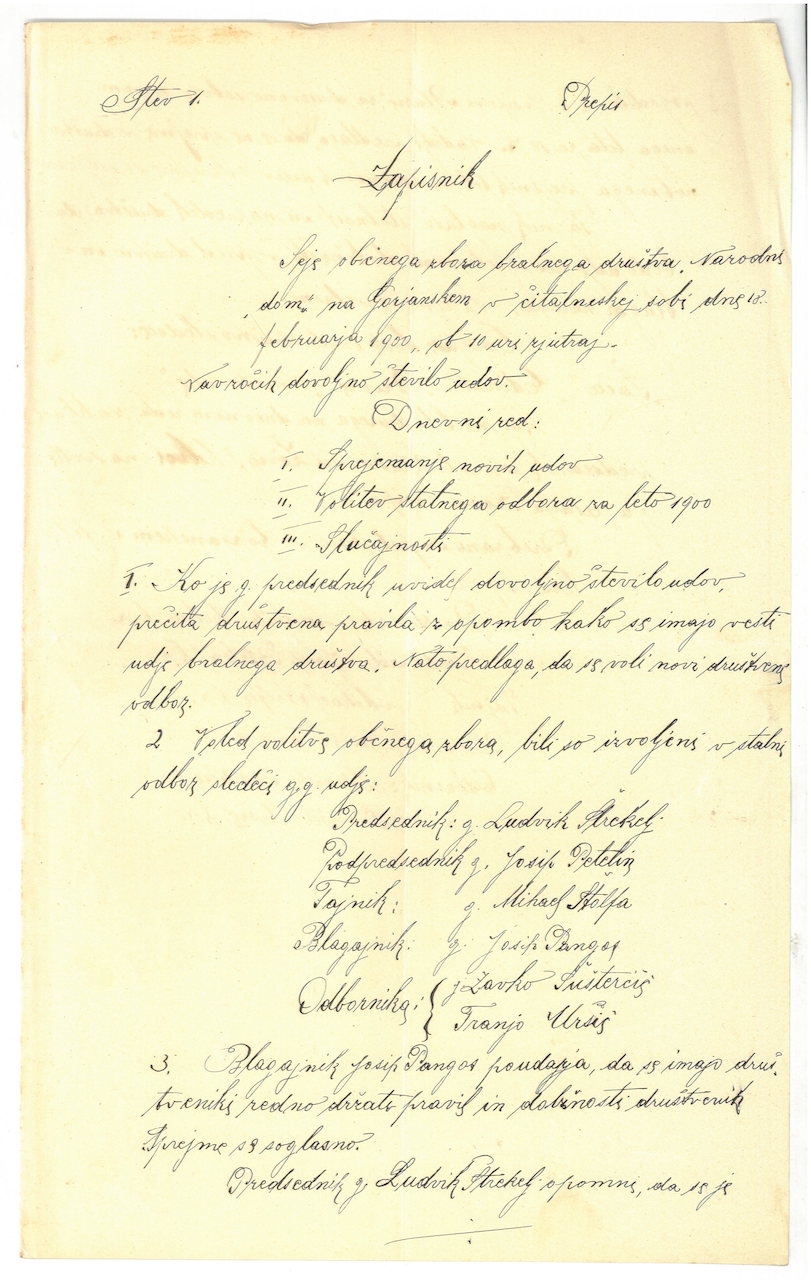 Štev 1.
Prepis
Zapisnik
Seje občnega zbora bralnega društva „Narodni
dom“ na Gorjanskem v čitalneskej sobi dne 18.
februarja 1900, ob 10 uri zjutraj.
Navzočih dovoljno število udov.
Dnevni red:
I. Sprejemanje novih udov
II. Volitev stalnega odbora za leto 1900
III. Slučajnosti
I. Ko je g. predsednik uvidel dovoljno število udov,
prečita društvena pravila z opombo kako se imajo vesti
udje bralnega društva. Nato predlaga, da se voli novi društveni
odbor.
2 Vsled volitve občnega zbora, bili so izvoljeni v stalni
odbor sledeči g.g. udje:
Predsednik: g. Ludvik Štrekelj
Podpredsednik g. Josip Petelin
Tajnik: g. Mihael Štolfa
Blagajnik: g. Josip Pangos
Odbornika: Žavko Šušteršič
Franjo Uršič
3. Blagajnik Josip Pangos poudarja, da se imajo druš-
tveniki redno držati pravil in dolžnosti društvenik
Sprejme se soglasno.
Predsednik g. Ludvik Štrekelj opomni, da se je